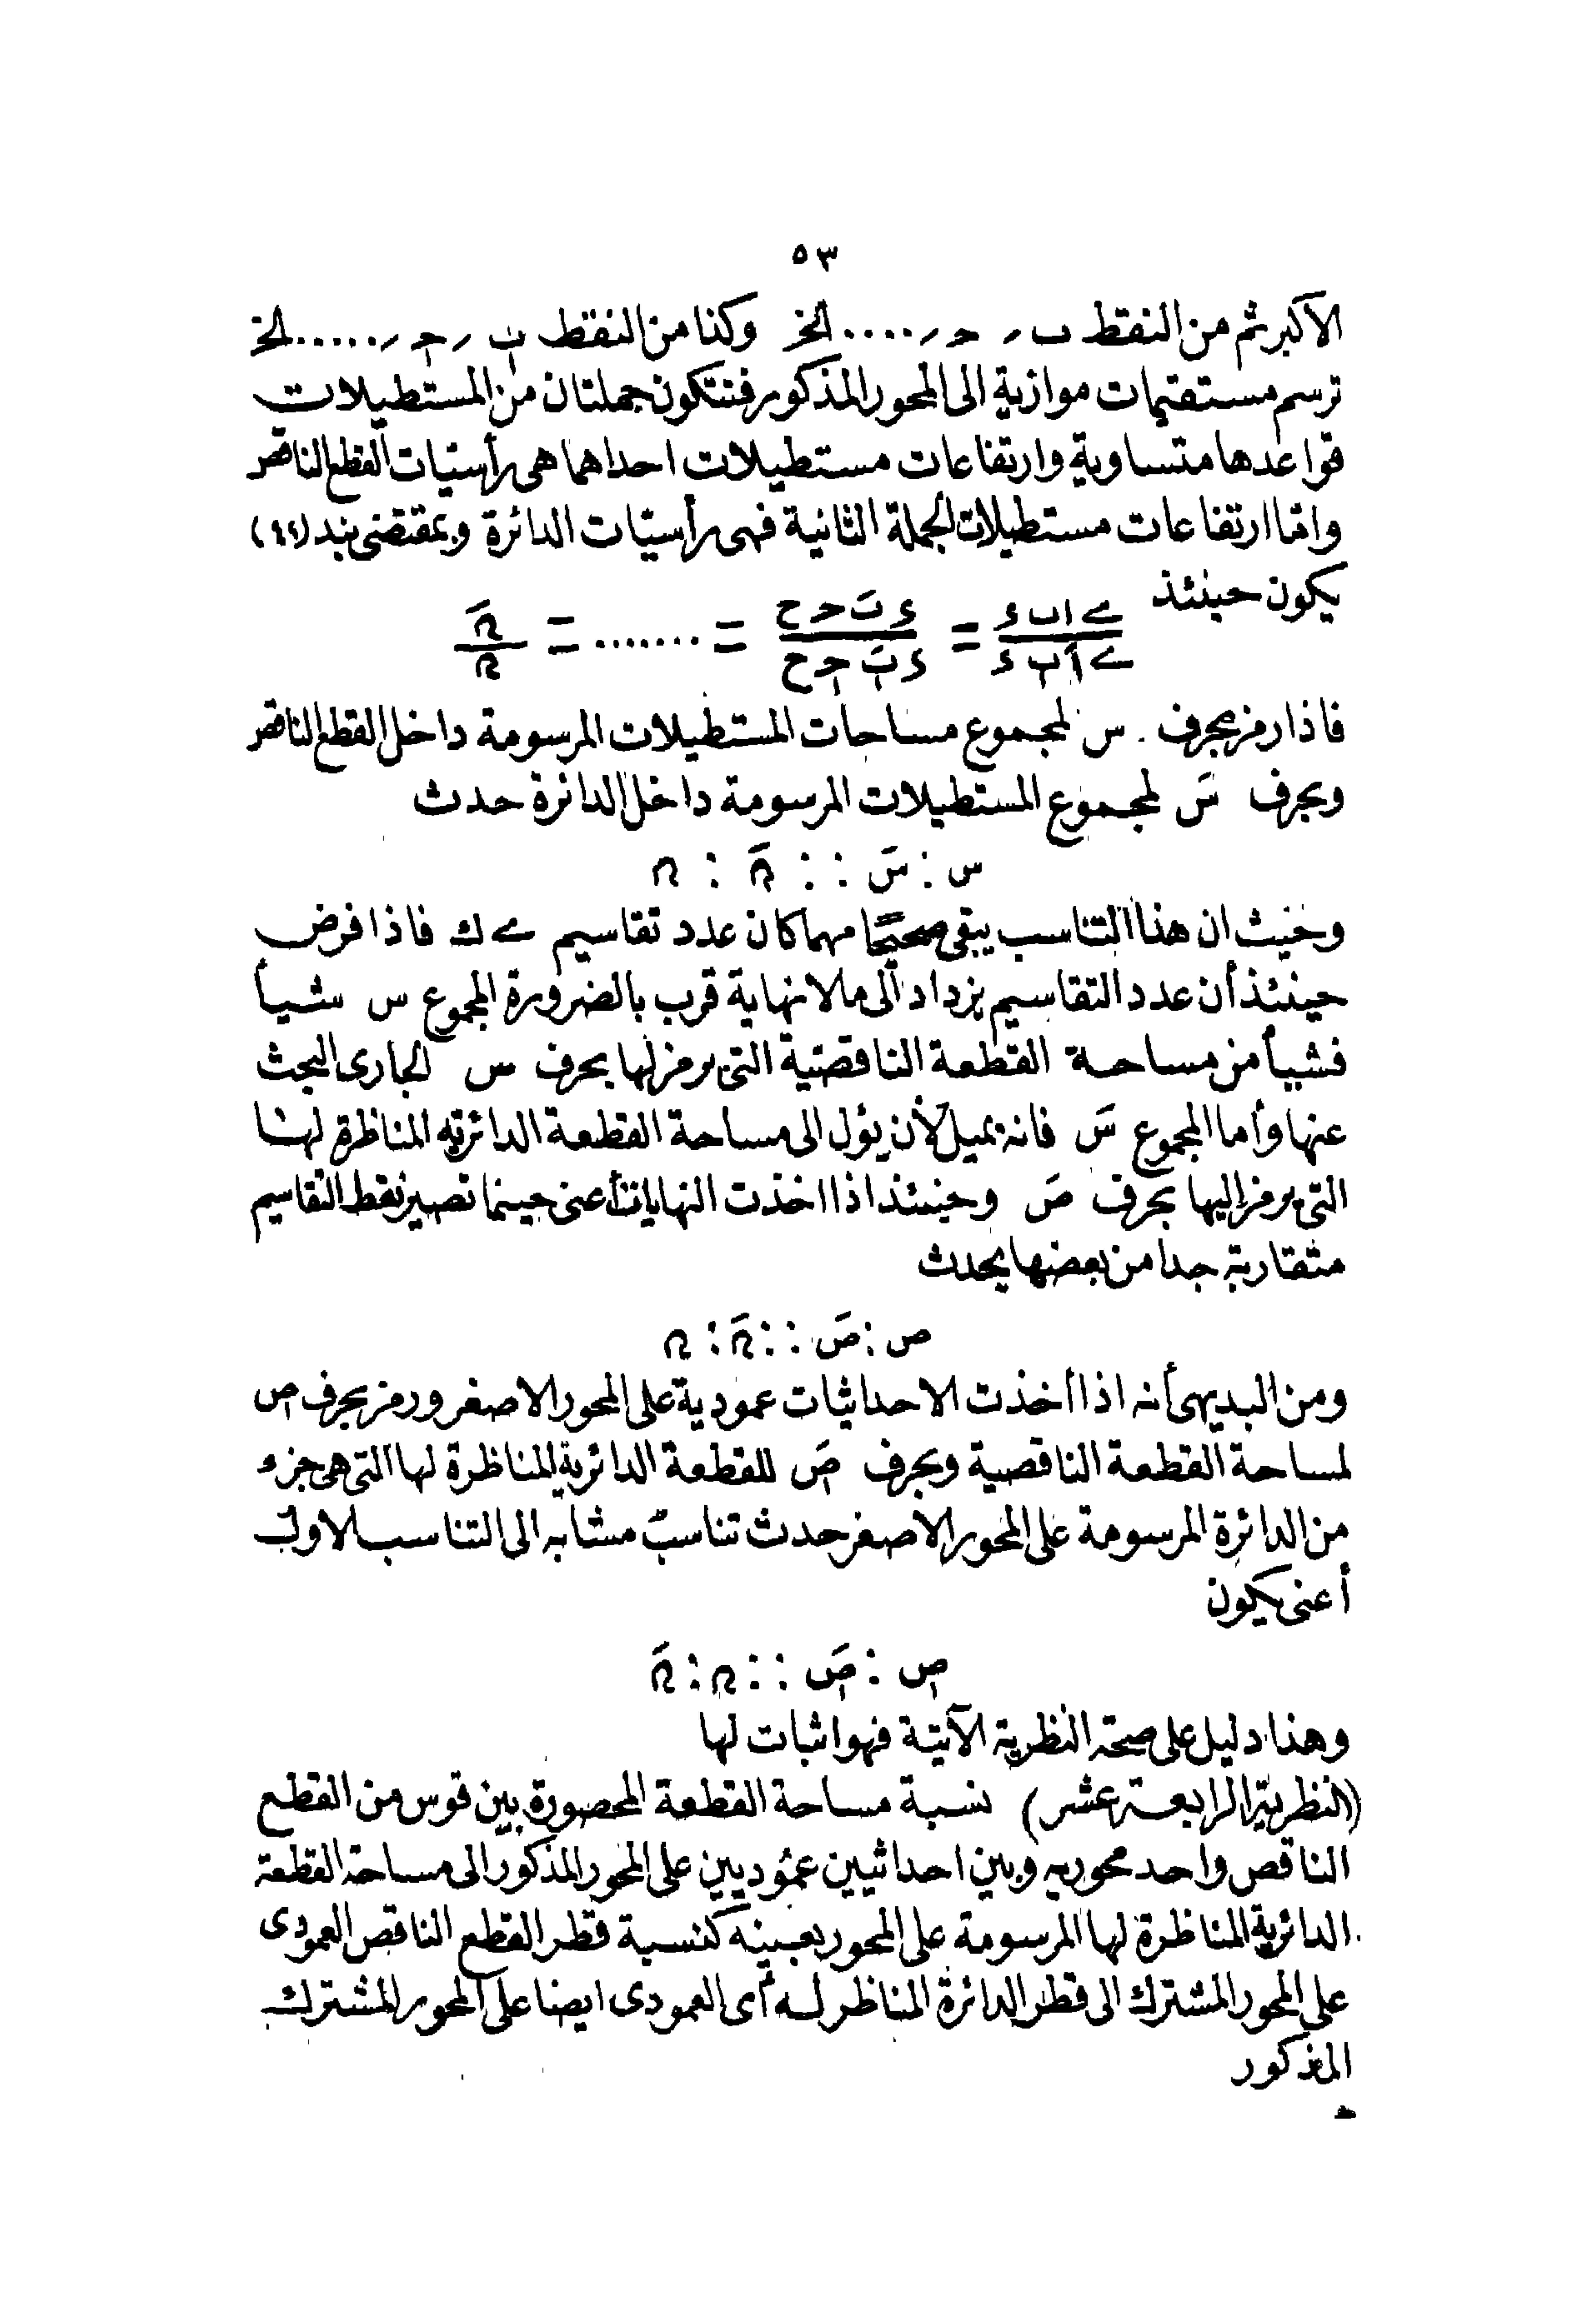 ٥٣
الاكبر ثم من النقط ب ر ح ر .... الخ وكذا من النقط ب ر ح ر ..... الخ
ترسم مستقيمات موازية الى المحور المذكور فتتكون جملتان من المستطيلات
قواعدها متساوية وارتفاعات مستطيلات احداهما هى رأسيّات القطع الناقص
وامّا ارتفاعات مستطيلات الجملة الثانية فهى رأسيّات الدائرة وبمقتضى بند (٤٤)
يكون حينئذ
فاذا رمز بحرف س لمجموع مساحات المستطيلات المرسومة داخل القطع الناقص
وبحرف سَ لمجموع المستطيلات المرسومة داخل الدائرة حدث
س : سَ : : ﮞَ : ﮞ
وحيث ان هذا التناسب يبقى صحيحًا مهما كان عدد تقاسيم ے ك فاذا فرض
حينئذ أن عدد التقاسيم يزداد الى ما لانهاية قرب بالضرورة المجموع س شيأ
فشيأ من مساحة القطعة الناقصيّة التى يرمز لها بحرف ص الجارى البحث
عنها وأما المجموع سَ فانه يميل لأن يؤل الى مساحة القطعة الدائريه المناظرة لها
التى يرمز اليها بحرف صَ وحينئذ اذا اخذت النهايات أعنى حينما تصير نقط التقاسيم
متقاربة جدا من بعضها يحدث
ص : صَ : : ﮞَ : ﮞ
ومن البديهى أنه اذا أخذت الاحداثيات عمودية على المحور الاصغر ورمز بحرف ص
لمساحة القطعة الناقصية وبحرف صَ للقطعة الدائرية المناظرة لها التى هى جزء
من الدائرة المرسومة على المحور الاصغر حدث تناسبٌ مشابه الى التناسب الاول
أعنى يكون
ص : صَ : : ﮞ : ﮞَ
وهذا دليل على صحة النظرية الآتية فهو اثبات لها
(النظرية الرابعة عشر) نسبة مساحة القطعة المحصورة بين قوس من القطع
الناقص واحد محوريه وبين احداثيين عموديين على المحور المذكور الى مساحة القطعة
الدائرية المناظرة لها المرسومة على المحور بعينه كنسبة قطر القطع الناقص العمودى
على المحور المشترك الى قطر الدائرة المناظر له أى العمودى ايضا على المحور المشترك
المذكور